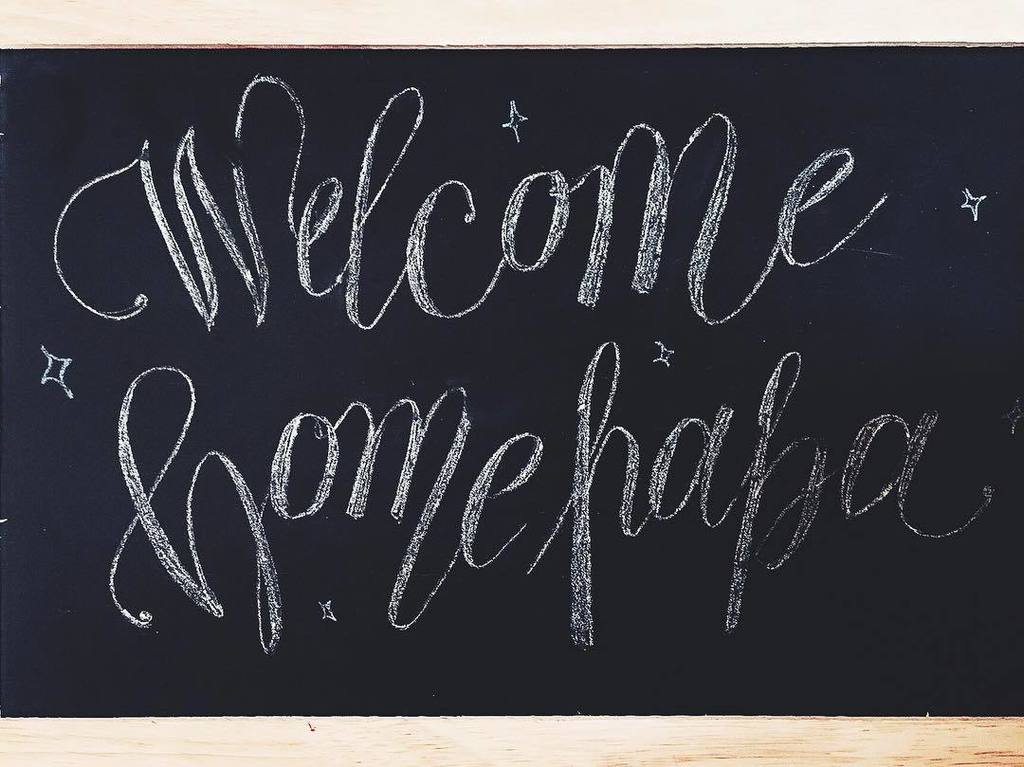 Welcome
home papa